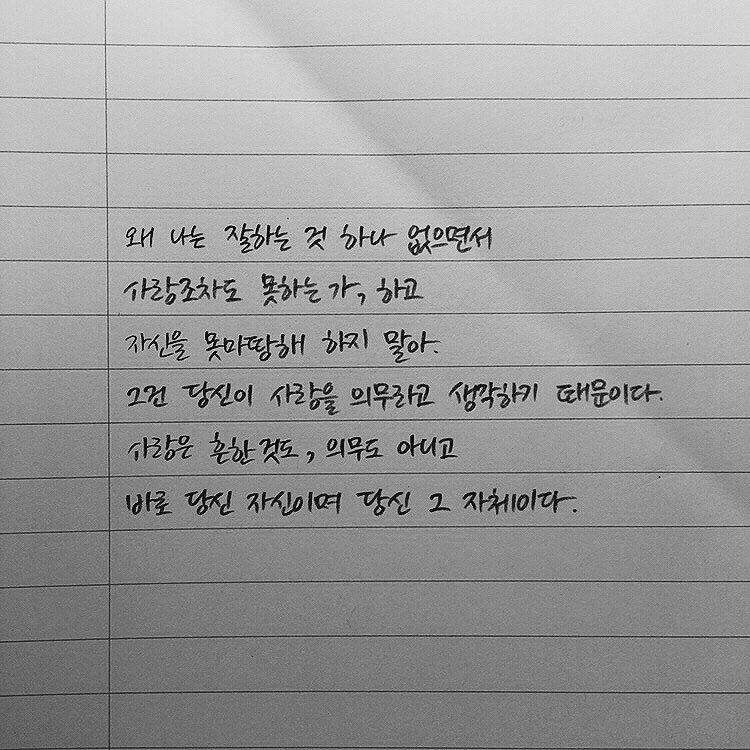 왜 나는 잘하는 것 하나 없으면서
사랑조차도 못하는가, 하고
자신을 못마땅해 하지 말아.
그건 당신이 사랑을 의무라고 생각하기 때문이다.
사랑은 흔한것도, 의무도 아니고
바로 당신 자신이며 당신 그 자체이다.